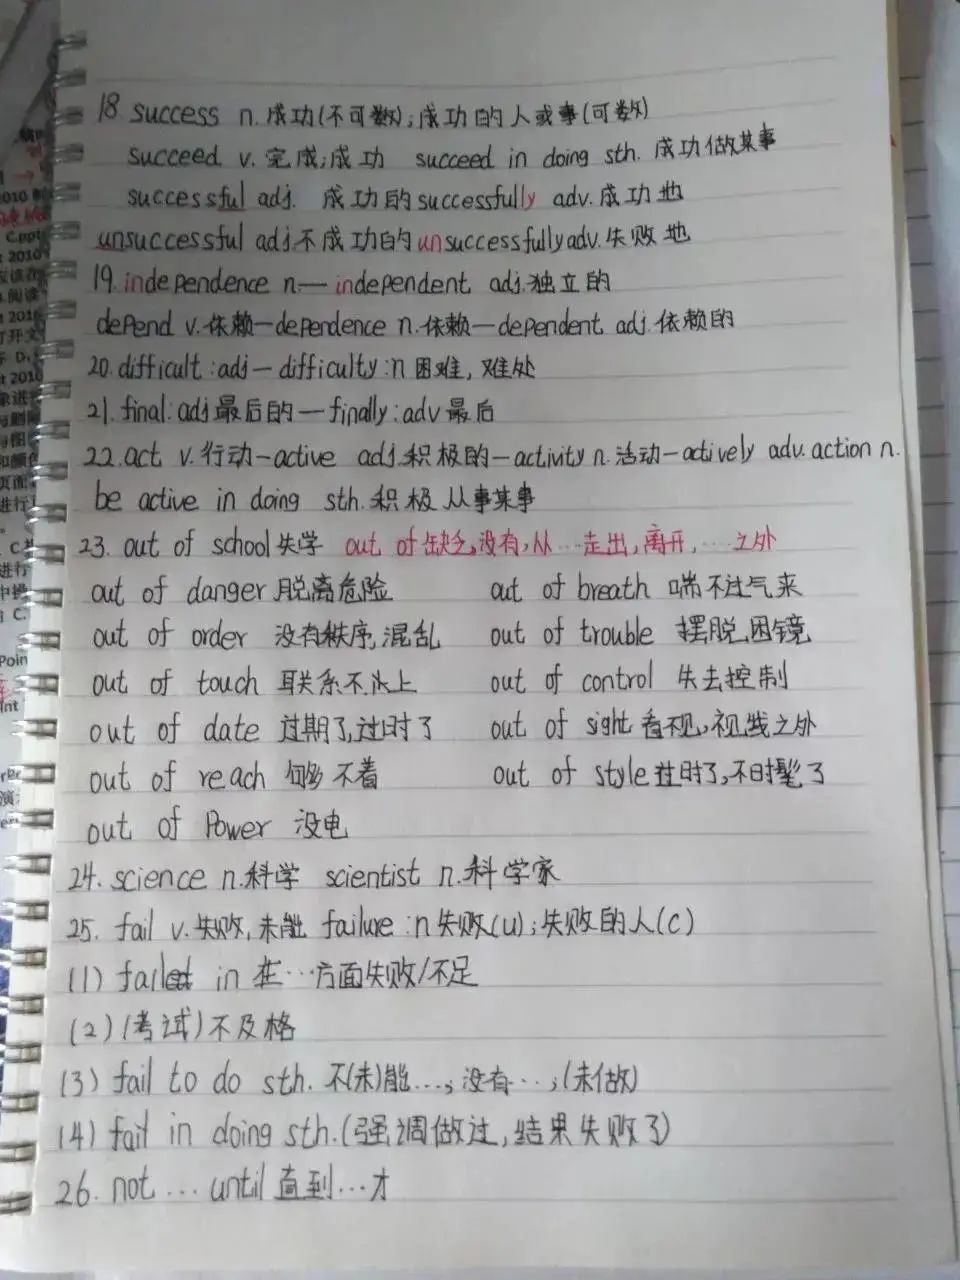 18. success n.成功(不可数);成功的人或事(可数)
succeed v.完成;成功 succeed in doing sth. 成功做某事
successful adj. 成功的 successfully adv.成功地
unsuccessful adj.不成功的 unsuccessfully adv.失败地
19.independence n.—independent adj.独立的
depend v.依赖—dependence n.依赖—dependent adj.依赖的
20.difficult:adj—difficulty:n 困难,难处
21.final:adj最后的—finally:adv最后
22.act v.行动—active adj.积极的—activity n.活动—actively adv.action n.
be active in doing sth.积极从事某事
23.out of school失学 out of缺乏,没有,从…走出,离开,…之外
out of danger脱离危险 out of breath 喘不过气来
out of order 没有秩序,混乱 out of trouble 摆脱困镜
out of touch 联系不上 out of control 失去控制
out of date 过期了,过时了 out of sight看不见,视线之外
out of reach 够不着 out of style过时了,不时髦了
out of Power 没电
24.science n.科学 scientist n.科学家
25. fail v.失败,未能 failure:n失败(u);失败的人(c)
(1) failed in 在…方面失败/不足
(2)(考试)不及格
(3) fail to do sth.不(未)能…;没有…;(未做)
(4) fail in doing sth.(强调做过,结果失败了)
26. not … until直到…才